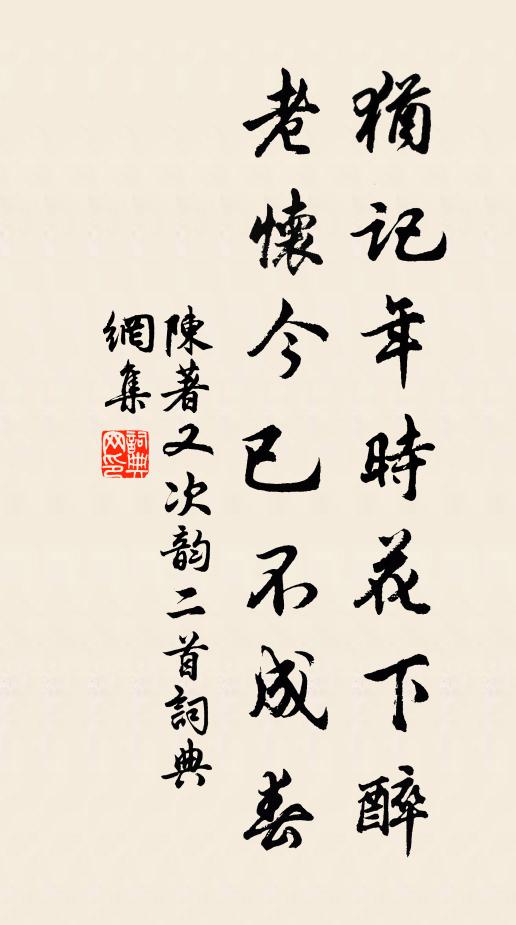 猶記年時花下醉
老懷今已不成春
陳著又次韵二首詞典
網集
詞典網印